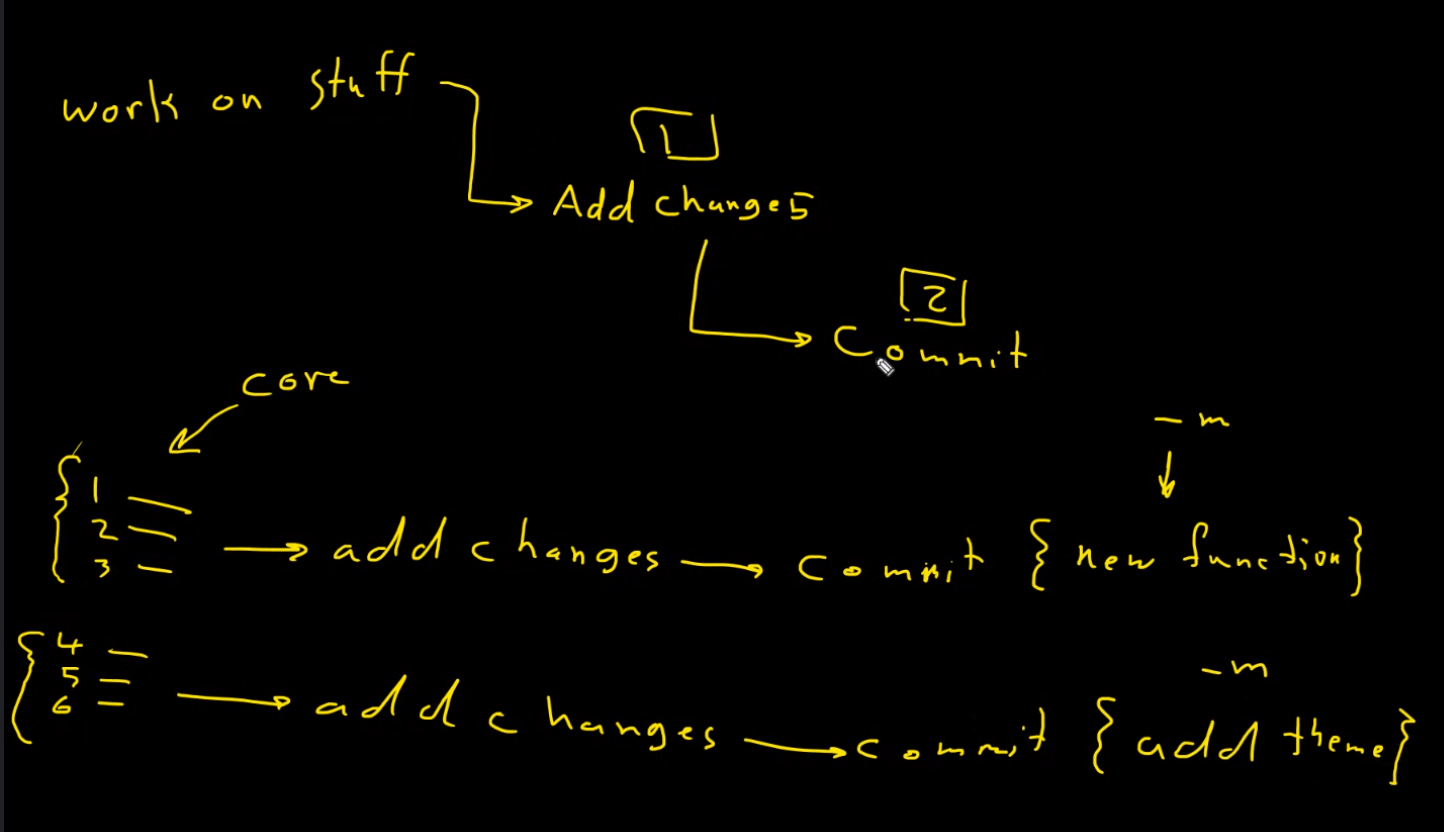 work on stuff
1
Add changes
2
Commit
core
- m
1
2
3
add changes
commit { new function }
4
5
6
- m
add changes
commit { add theme }